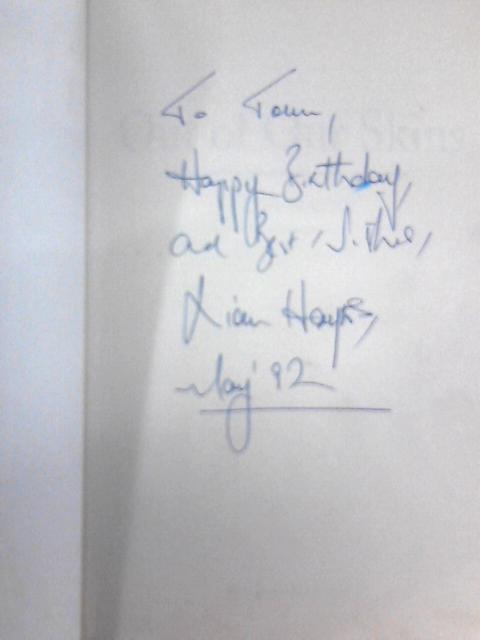 To
Out of Our Skins
Happy Birthday,
and Best Wishes,
Liam Hayes,
May '92